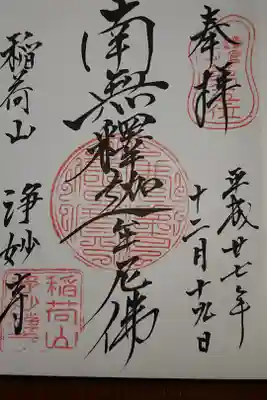 奉拝
平成廿七年
十二月十九日
南無釋迦牟尼佛
稲荷山
浄妙寺
稲荷山
浄妙寺